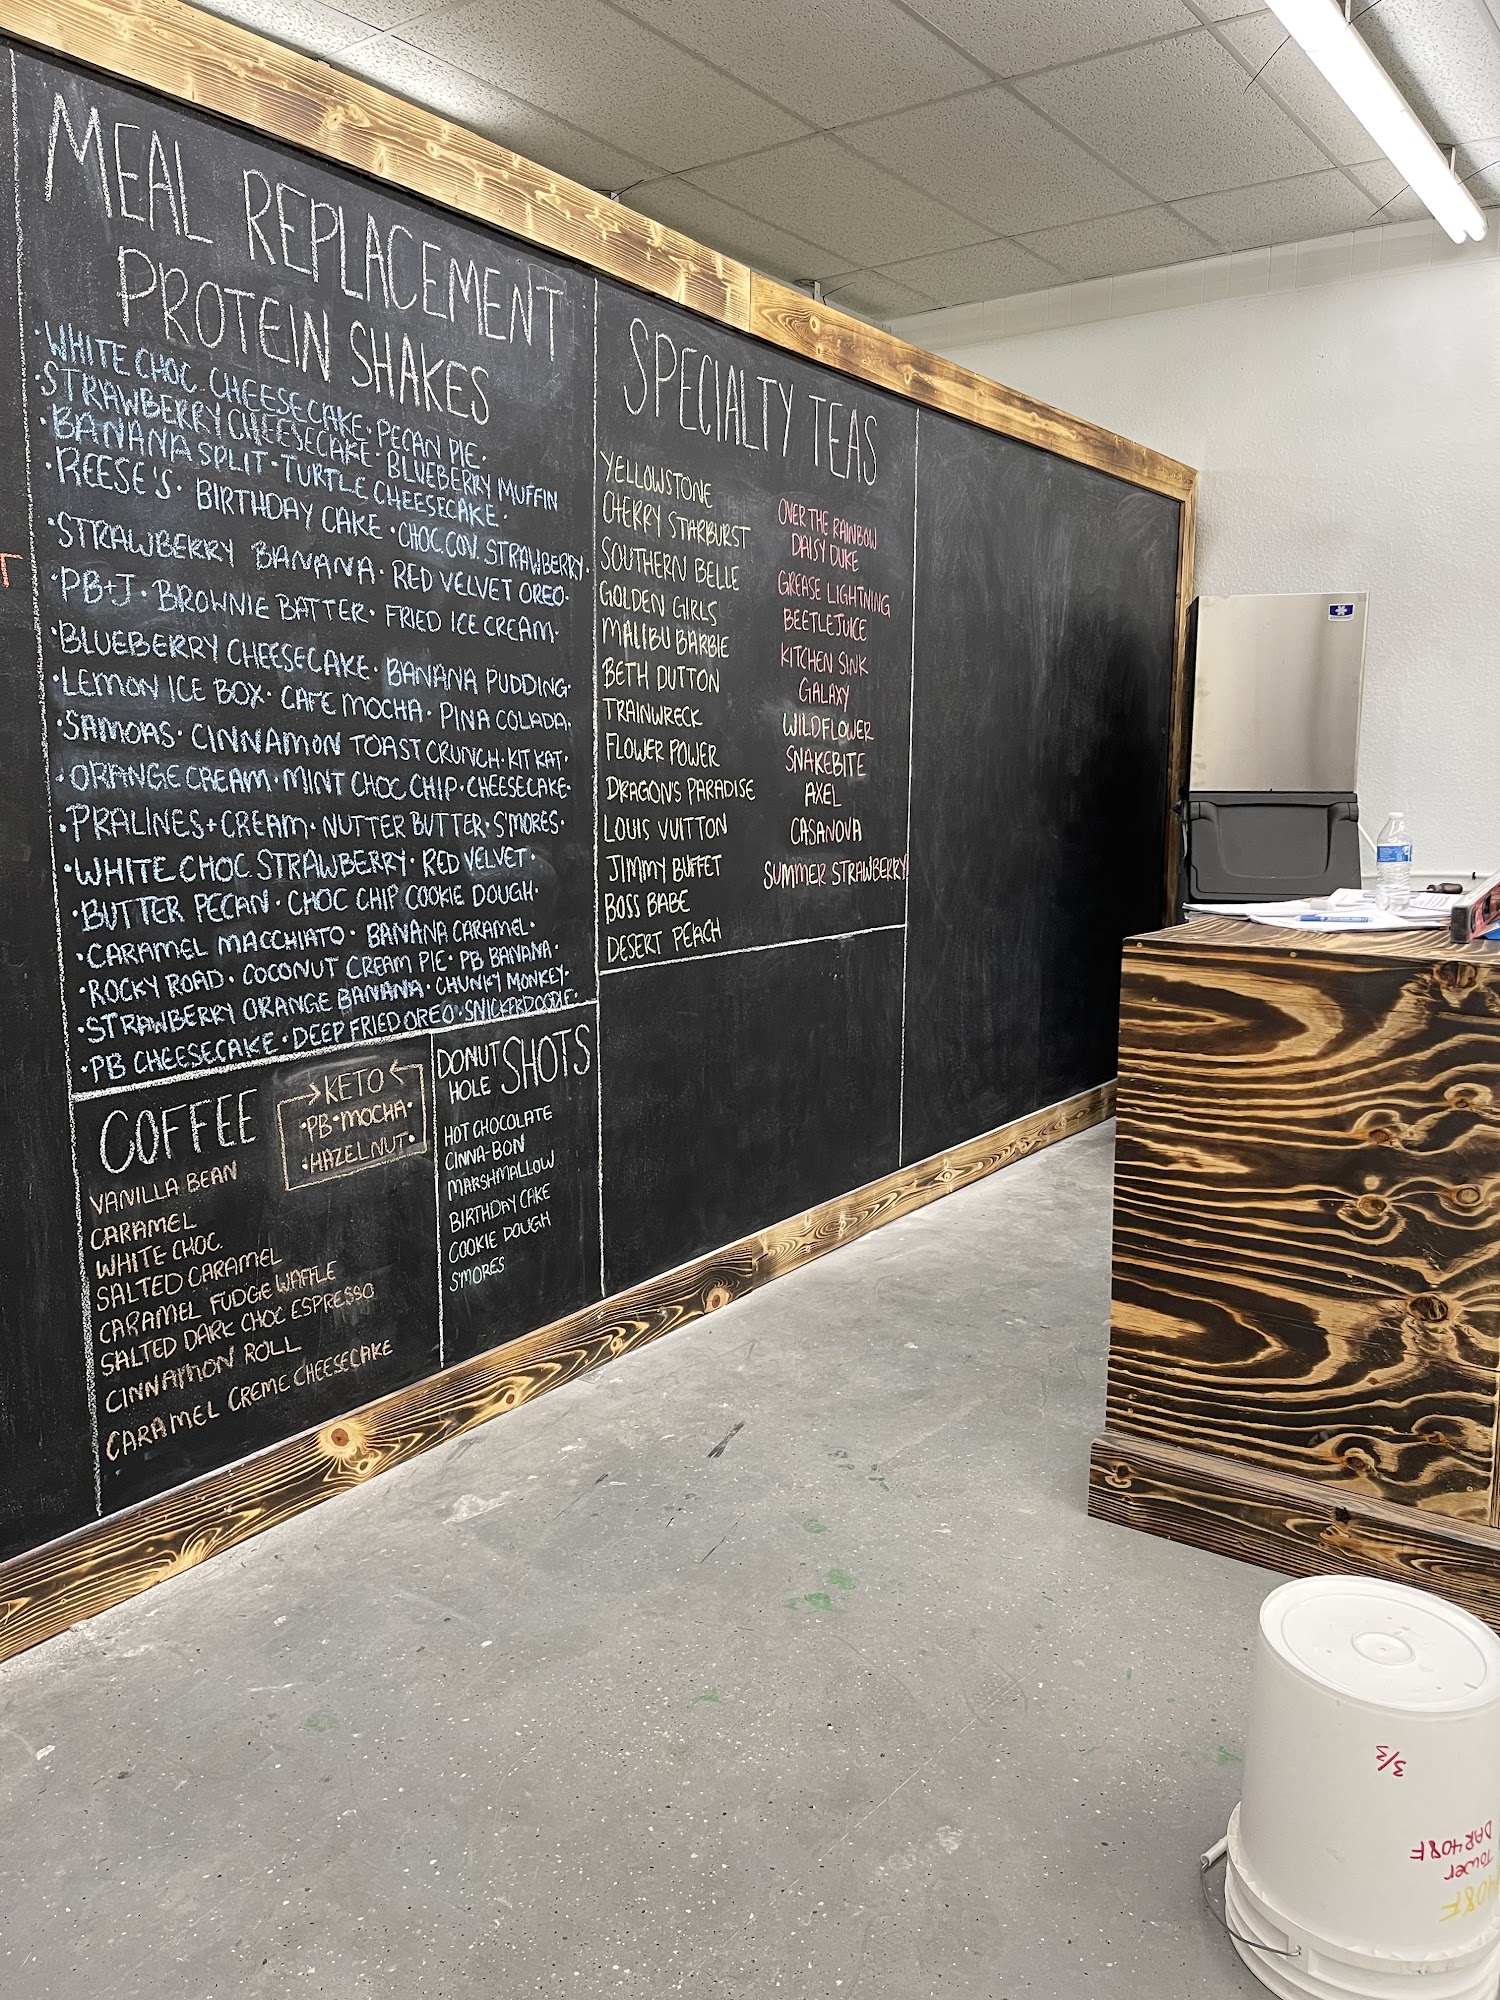 MEAL REPLACEMENT
PROTEIN SHAKES
·WHITE CHOC CHEESECAKE·PECAN PIE·
·STRAWBERRY CHEESECAKE·BLUEBERRY MUFFIN
·BANANA SPLIT·TURTLE CHEESECAKE·
·REESE'S·BIRTHDAY CAKE·CHOC.COV. STRAWBERRY·
·STRAWBERRY BANANA·RED VELVET OREO·
·PB+J·BROWNIE BATTER·FRIED ICE CREAM·
·BLUEBERRY CHEESECAKE·BANANA PUDDING·
·LEMON ICE BOX·CAFE MOCHA·PINA COLADA·
·SAMOAS·CINNAMON TOAST CRUNCH·KIT KAT·
·ORANGE CREAM·MINT CHOC CHIP·CHEESECAKE·
·PRALINES+CREAM·NUTTER BUTTER·S'MORES·
·WHITE CHOC STRAWBERRY·RED VELVET·
·BUTTER PECAN·CHOC CHIP COOKIE DOUGH·
·CARAMEL MACCHIATO·BANANA CARAMEL·
·ROCKY ROAD·COCONUT CREAM PIE·PB BANANA·
·STRAWBERRY ORANGE BANANA·CHUNKY MONKEY·
·PB CHEESECAKE·DEEP FRIED OREO·SNICKERDOODLE·
COFFEE
VANILLA BEAN
CARAMEL
WHITE CHOC.
SALTED CARAMEL
CARAMEL FUDGE WAFFLE
SALTED DARK CHOC ESPRESSO
CINNAMON ROLL
CARAMEL CREME CHEESECAKE
→KETO←
·PB·MOCHA·
·HAZELNUT·
DONUT
HOLE SHOTS
HOT CHOCOLATE
CINNA-BON
MARSHMALLOW
BIRTHDAY CAKE
COOKIE DOUGH
S'MORES
SPECIALTY TEAS
YELLOWSTONE
CHERRY STARBURST
SOUTHERN BELLE
GOLDEN GIRLS
MALIBU BARBIE
BETH DUTTON
TRAINWRECK
FLOWER POWER
DRAGON'S PARADISE
LOUIS VUITTON
JIMMY BUFFET
BOSS BABE
DESERT PEACH
OVER THE RAINBOW
DAISY DUKE
GREASE LIGHTNING
BEETLEJUICE
KITCHEN SINK
GALAXY
WILDFLOWER
SNAKEBITE
AXEL
CASANOVA
SUMMER STRAWBERRY
T
3/3
Tower
DAR408F
408F